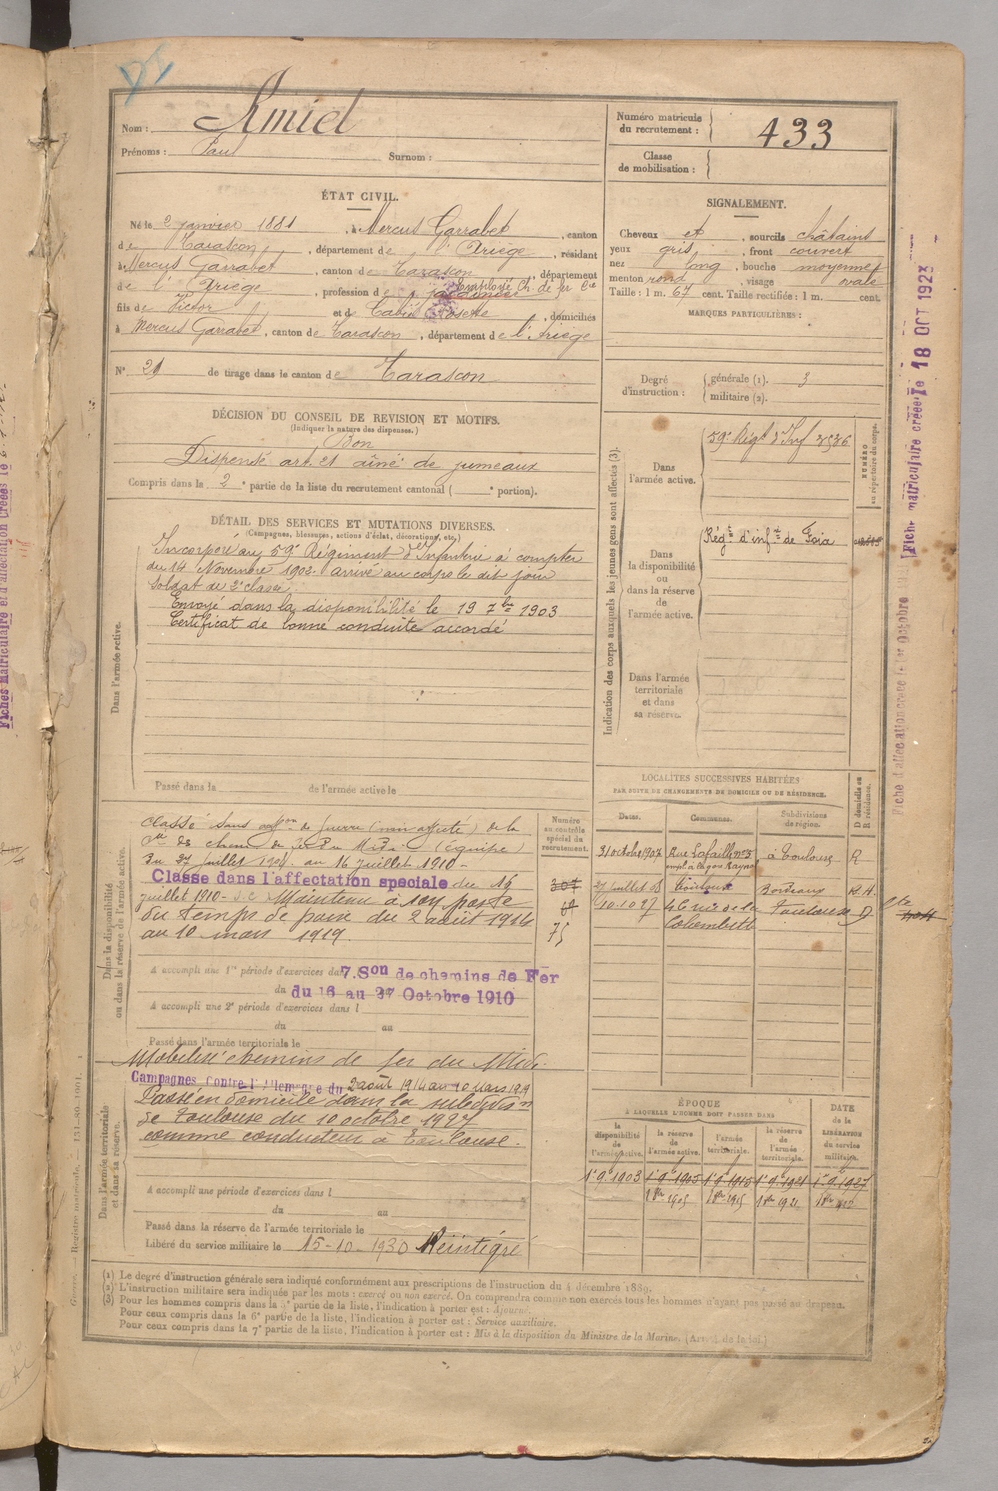 Nom : Amiel
Prénoms : Paul Surnom :
Numéro matricule du recrutement : 433
Classe de mobilisation :
ÉTAT CIVIL.
Né le 2 janvier 1881, à Mercus Garrabet, canton
de Tarascon, département de l'Ariège, résidant
à Mercus Garrabet, canton de Tarascon, département
de l'Ariège, profession de Employé Ch. de fer
fils de Victor et de Rosette, domiciliés
à Mercus Garrabet, canton de Tarascon, département de l'Ariège
N° 21 de tirage dans le canton de Tarascon
SIGNALEMENT.
Cheveux et, sourcils châtains
yeux gris, front couvert
nez long, bouche moyenne
menton rond, visage ovale
Taille : 1 m. 67 cent. Taille rectifiée : 1 m. cent.
MARQUES PARTICULIÈRES :
Degré d'instruction : générale (1). 3
militaire (2).
DÉCISION DU CONSEIL DE REVISION ET MOTIFS.
(Indiquer la nature des dispenses.)
Bon
Dispensé art. 21 aîné de jumeaux
Compris dans la 2e partie de la liste du recrutement cantonal ( e portion).
DÉTAIL DES SERVICES ET MUTATIONS DIVERSES.
(Campagnes, blessures, actions d'éclat, décorations, etc.)
Dans l'armée active.
Incorporé au 59e Régiment d'Infanterie à compter
du 14 Novembre 1902. arrivé au corps le dit jour
Soldat de 2e classe.
Envoyé dans la disponibilité le 19 7bre 1903
Certificat de bonne conduite accordé
Passé dans la de l'armée active le
Indication des corps auxquels les jeunes gens sont affectés (3).
NUMÉRO au répertoire du corps.
Dans l'armée active.
59e Régt d'Inf 3536
Dans la disponibilité ou dans la réserve de l'armée active.
Régt d'infie de Foix
Dans l'armée territoriale et dans sa réserve.
Dans la disponibilité ou dans la réserve de l'armée active.
Numéro au contrôle spécial du recrutement.
Classé sans affon de guerre (non affecté) de la
Cie des chem. de fer du Midi (équipe)
Du 27 juillet 1908 au 16 juillet 1910-
Classé dans l'affectation spéciale du 16
juillet 1910- Maintenu à son poste
du temps de paix du 2 août 1914
au 10 mars 1919.
207
75
A accompli une 1re période d'exercices dans 7. Son de chemins de Fer
du 16 au 27 Octobre 1910
A accompli une 2e période d'exercices dans l
du au
Passé dans l'armée territoriale le
Dans l'armée territoriale et dans sa réserve.
Mobilisé chemins de fer du Midi.
Campagnes contre l'Allemagne du 2 août 1914 au 10 mars 1919
Passé en domicile dans la subdivision
de Toulouse du 10 octobre 1927
comme conducteur à Toulouse.
A accompli une période d'exercices dans l
du au
Passé dans la réserve de l'armée territoriale le
Libéré du service militaire le 15-10-1930 Réintégré
LOCALITÉS SUCCESSIVES HABITÉES
PAR SUITE DE CHANGEMENTS DE DOMICILE OU DE RÉSIDENCE.
Dates. Communes. Subdivisions de région. D domicile ou R résidence.
31 octobre 1907 Rue Lafaille n° 5 à Toulouse R
27 juillet 08 Toulouse Bordeaux
10.10.27 46 rue de la Colombette Toulouse D
ÉPOQUE
À LAQUELLE L'HOMME DOIT PASSER DANS
DATE de la LIBÉRATION du service militaire.
la disponibilité de l'armée active. la réserve de l'armée active. l'armée territoriale. la réserve de l'armée territoriale.
1er 9e 1903 1er 9e 1905 1er 9e 1915 1er 9e 1921 1er 9e 1927
1er 8bre 1905 1er 8bre 1915 1er 8bre 1921
(1) Le degré d'instruction générale sera indiqué conformément aux prescriptions de l'instruction du 4 décembre 1889.
(2) L'instruction militaire sera indiquée par les mots : exercé ou non exercé. On comprendra comme non exercés tous les hommes n'ayant pas passé au drapeau.
(3) Pour les hommes compris dans la 5e partie de la liste, l'indication à porter est : Ajourné.
Pour ceux compris dans la 6e partie de la liste, l'indication à porter est : Service auxiliaire.
Pour ceux compris dans la 7e partie de la liste, l'indication à porter est : Mis à la disposition du Ministre de la Marine.
Fiche matriculaire créée le 18 OCT 1923
Fiche d'affectation créée le 1er Octobre